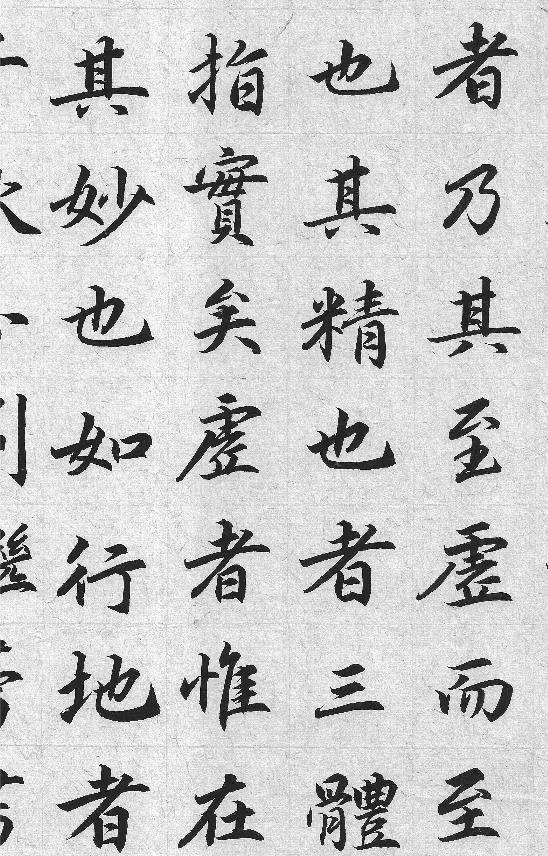 者乃其至虛而至
也其精也者三體
指實矣虛者惟在
其妙也如行地者